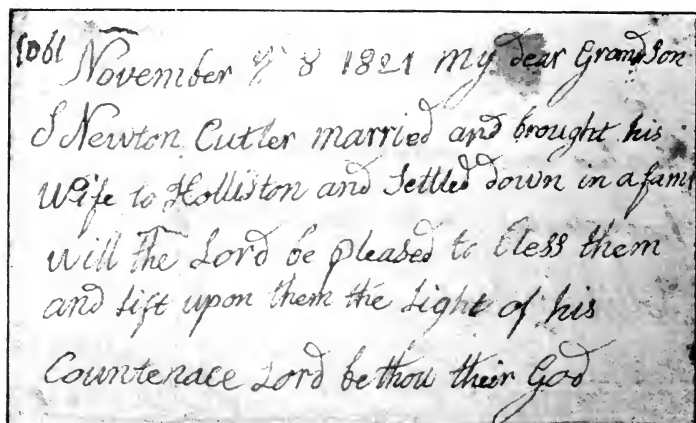 November ye 8 1821 my dear Grandson
S Newton Cutler married and brought his
wife to Holliston and Settled down in a fami
will the Lord be pleased to bless them
and lift upon them the Light of his
Countenace Lord be thou their God